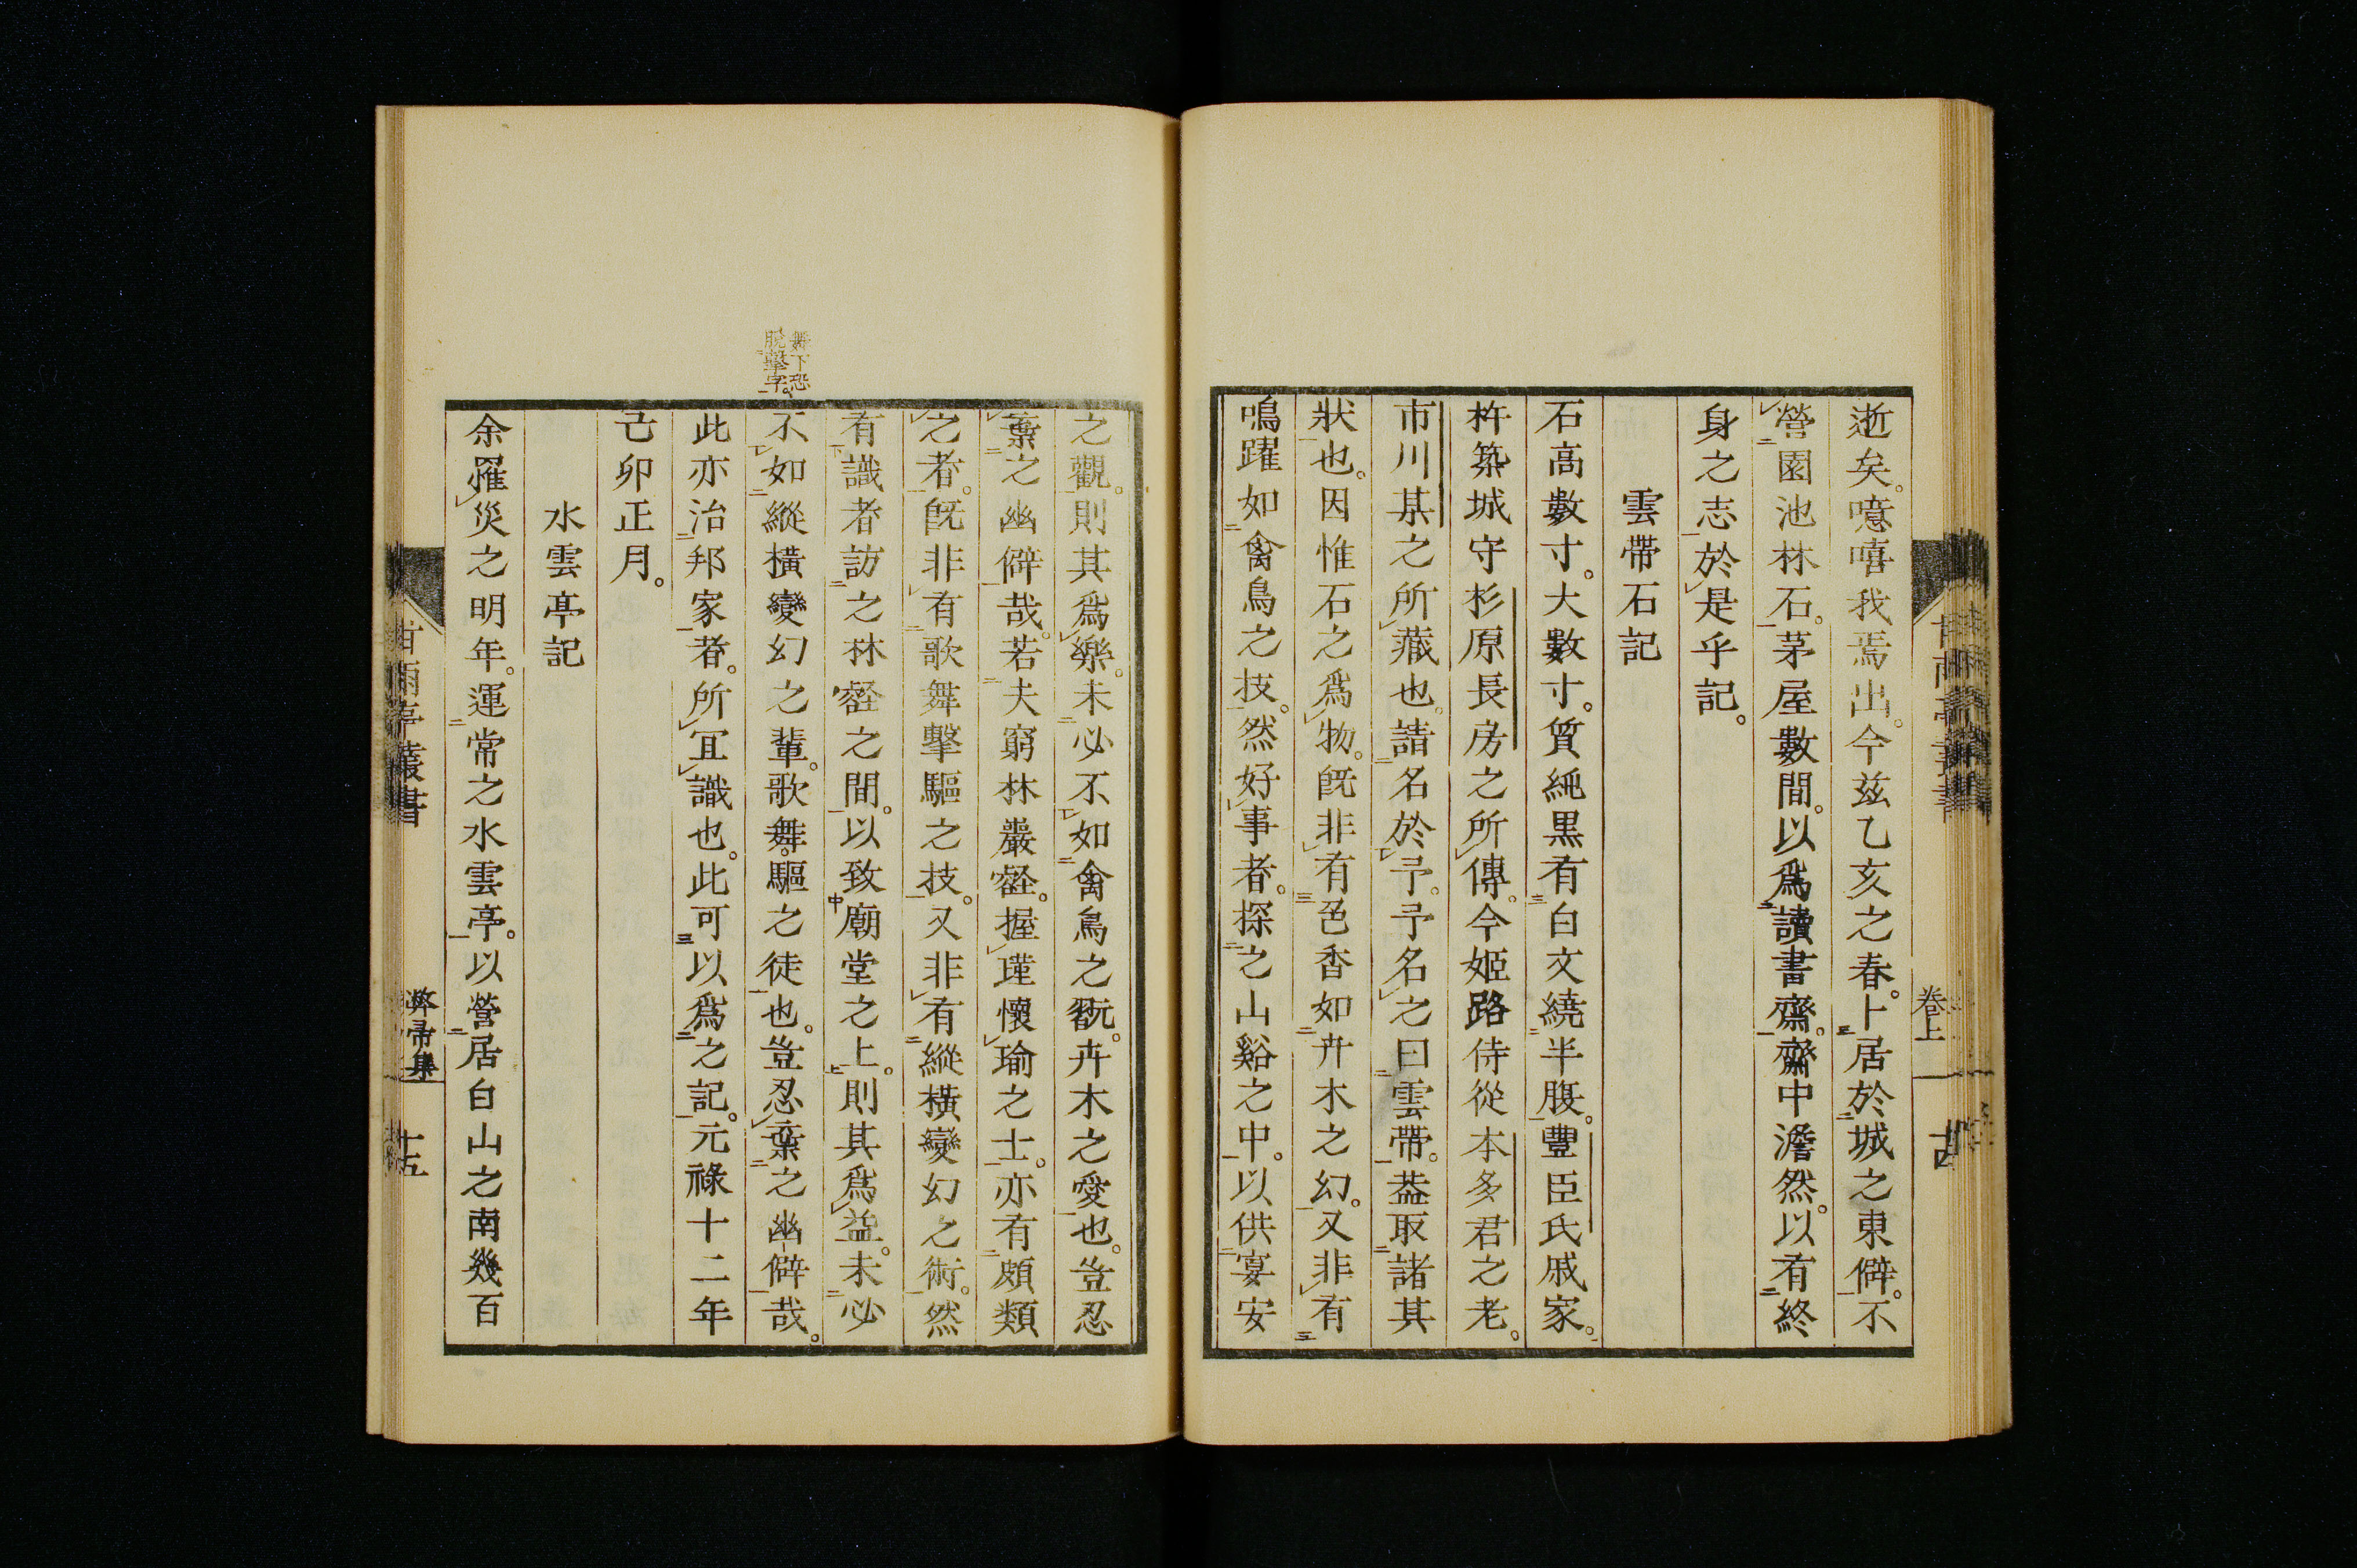 逝矣。噫嘻我焉出。今玆乙亥之春。卜居於城之東僻。不
營園池林石。茅屋數間。以爲讀書齋。齋中澹然。以有終
身之志於是乎記。
雲帶石記
石高數寸。大數寸。質純黒有白文繞半腹。豐臣氏戚家。
杵築城守杉原長房之所傳。今姬路侍從本多君之老。
市川某之所藏也。請名於予。予名之曰雲帶。葢取諸其
狀也。因惟石之爲物。旣非有色香如卉木之幻。又非有
鳴躍如禽鳥之技。然好事者。探之山谿之中。以供宴安
卷上
之觀。則其爲樂。未必不如禽鳥之翫。卉木之愛也。豈忍
棄之幽僻哉。若夫窮林巖壑。握瑾懷瑜之士。亦有頗類
之者。旣非有歌舞擊驅之技。又非有縱橫變幻之術。然
有識者訪之林壑之間。以致廟堂之上。則其爲益。未必
不如縱橫變幻之輩。歌舞。驅之徒也。豈忍棄之幽僻哉。
舞下恐
脫擊字。
此亦治邦家者。所宜識也。此可以爲之記。元祿十二年
己卯正月。
水雲亭記
余罹災之明年。運常之水雲亭。以營居白山之南幾百
甘雨亭叢書
弊帚集
十五